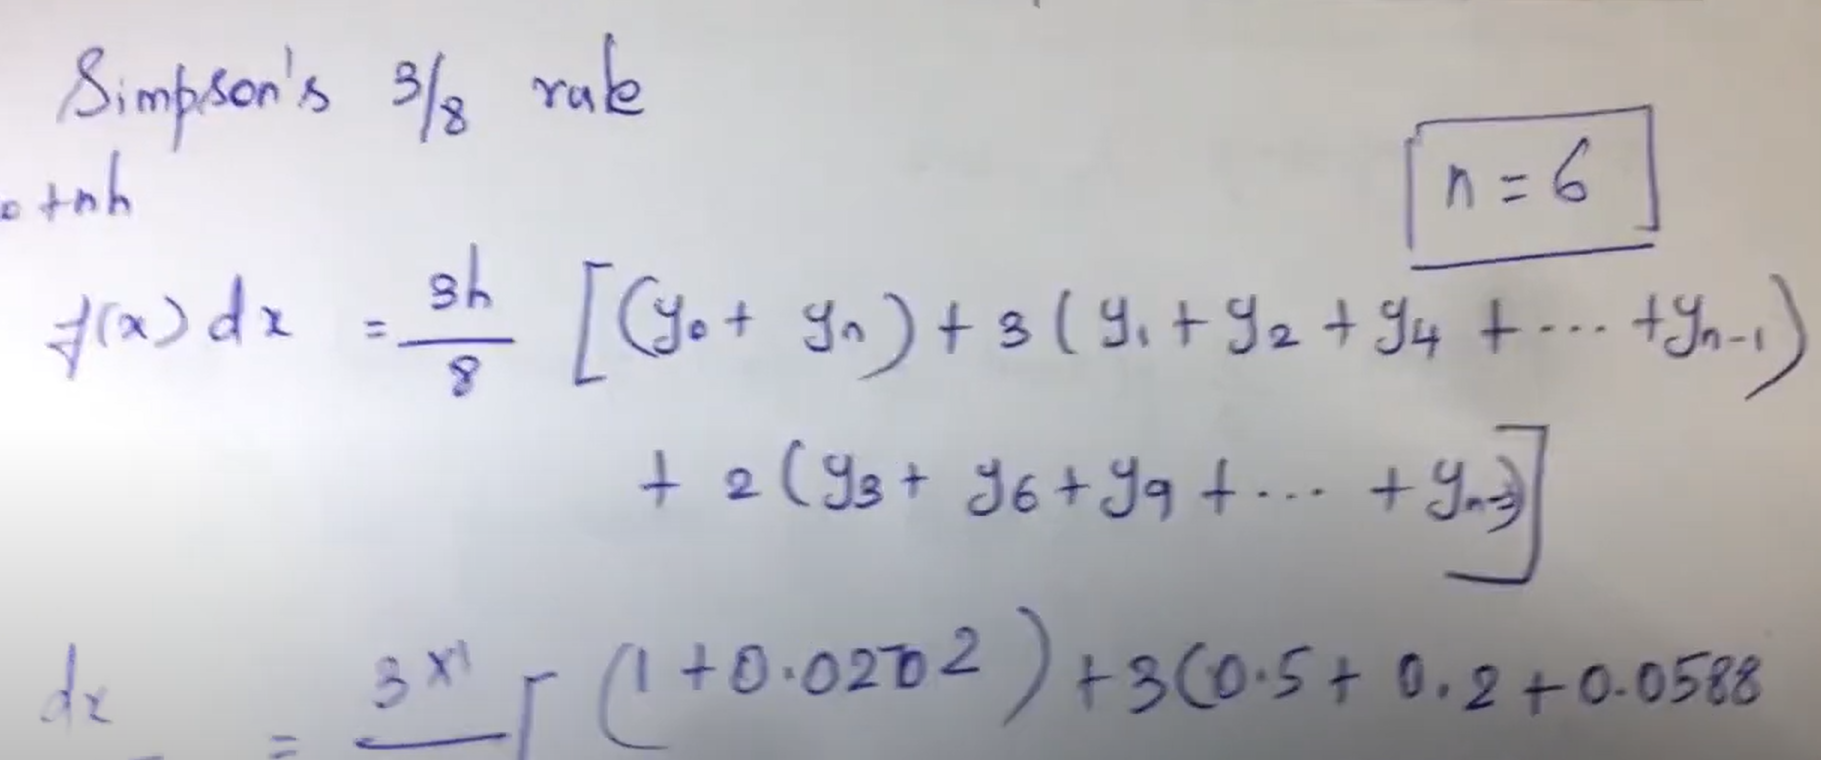 Simpson's 3/8 rule
n = 6
0 +nh
f(x) dx = 3h/8 [(y₀ + yₙ) + 3 ( y₁ + y₂ + y₄ + ... + yₙ₋₁)
+ 2 (y₃ + y₆ + y₉ + ... + yₙ₋₃)]
dx = 3×1 [ (1 + 0.0202) + 3(0.5 + 0.2 + 0.0588